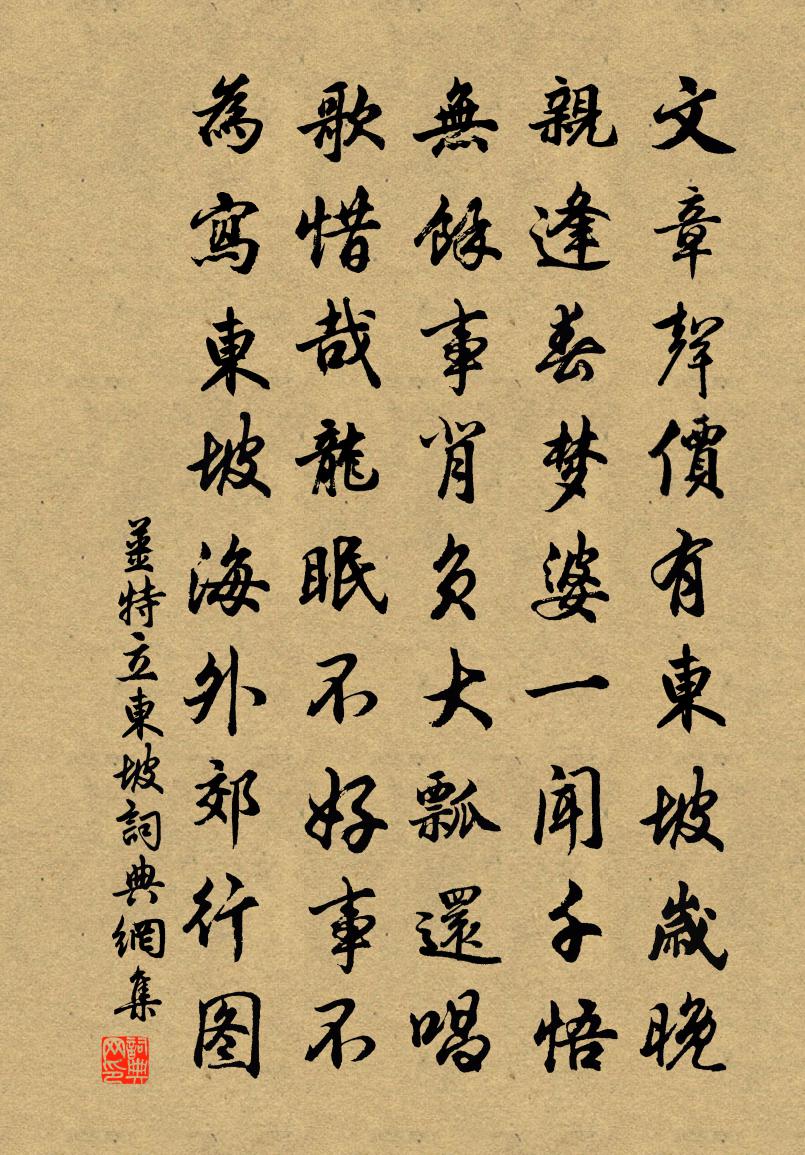 文章聲價有東坡歲晚
親逢春梦婆一聞千悟
無餘事背負大瓢還唱
歌惜哉龍眠不好事不
為寫東坡海外郊行图
薑特立東坡詞典網集
詞典
网印